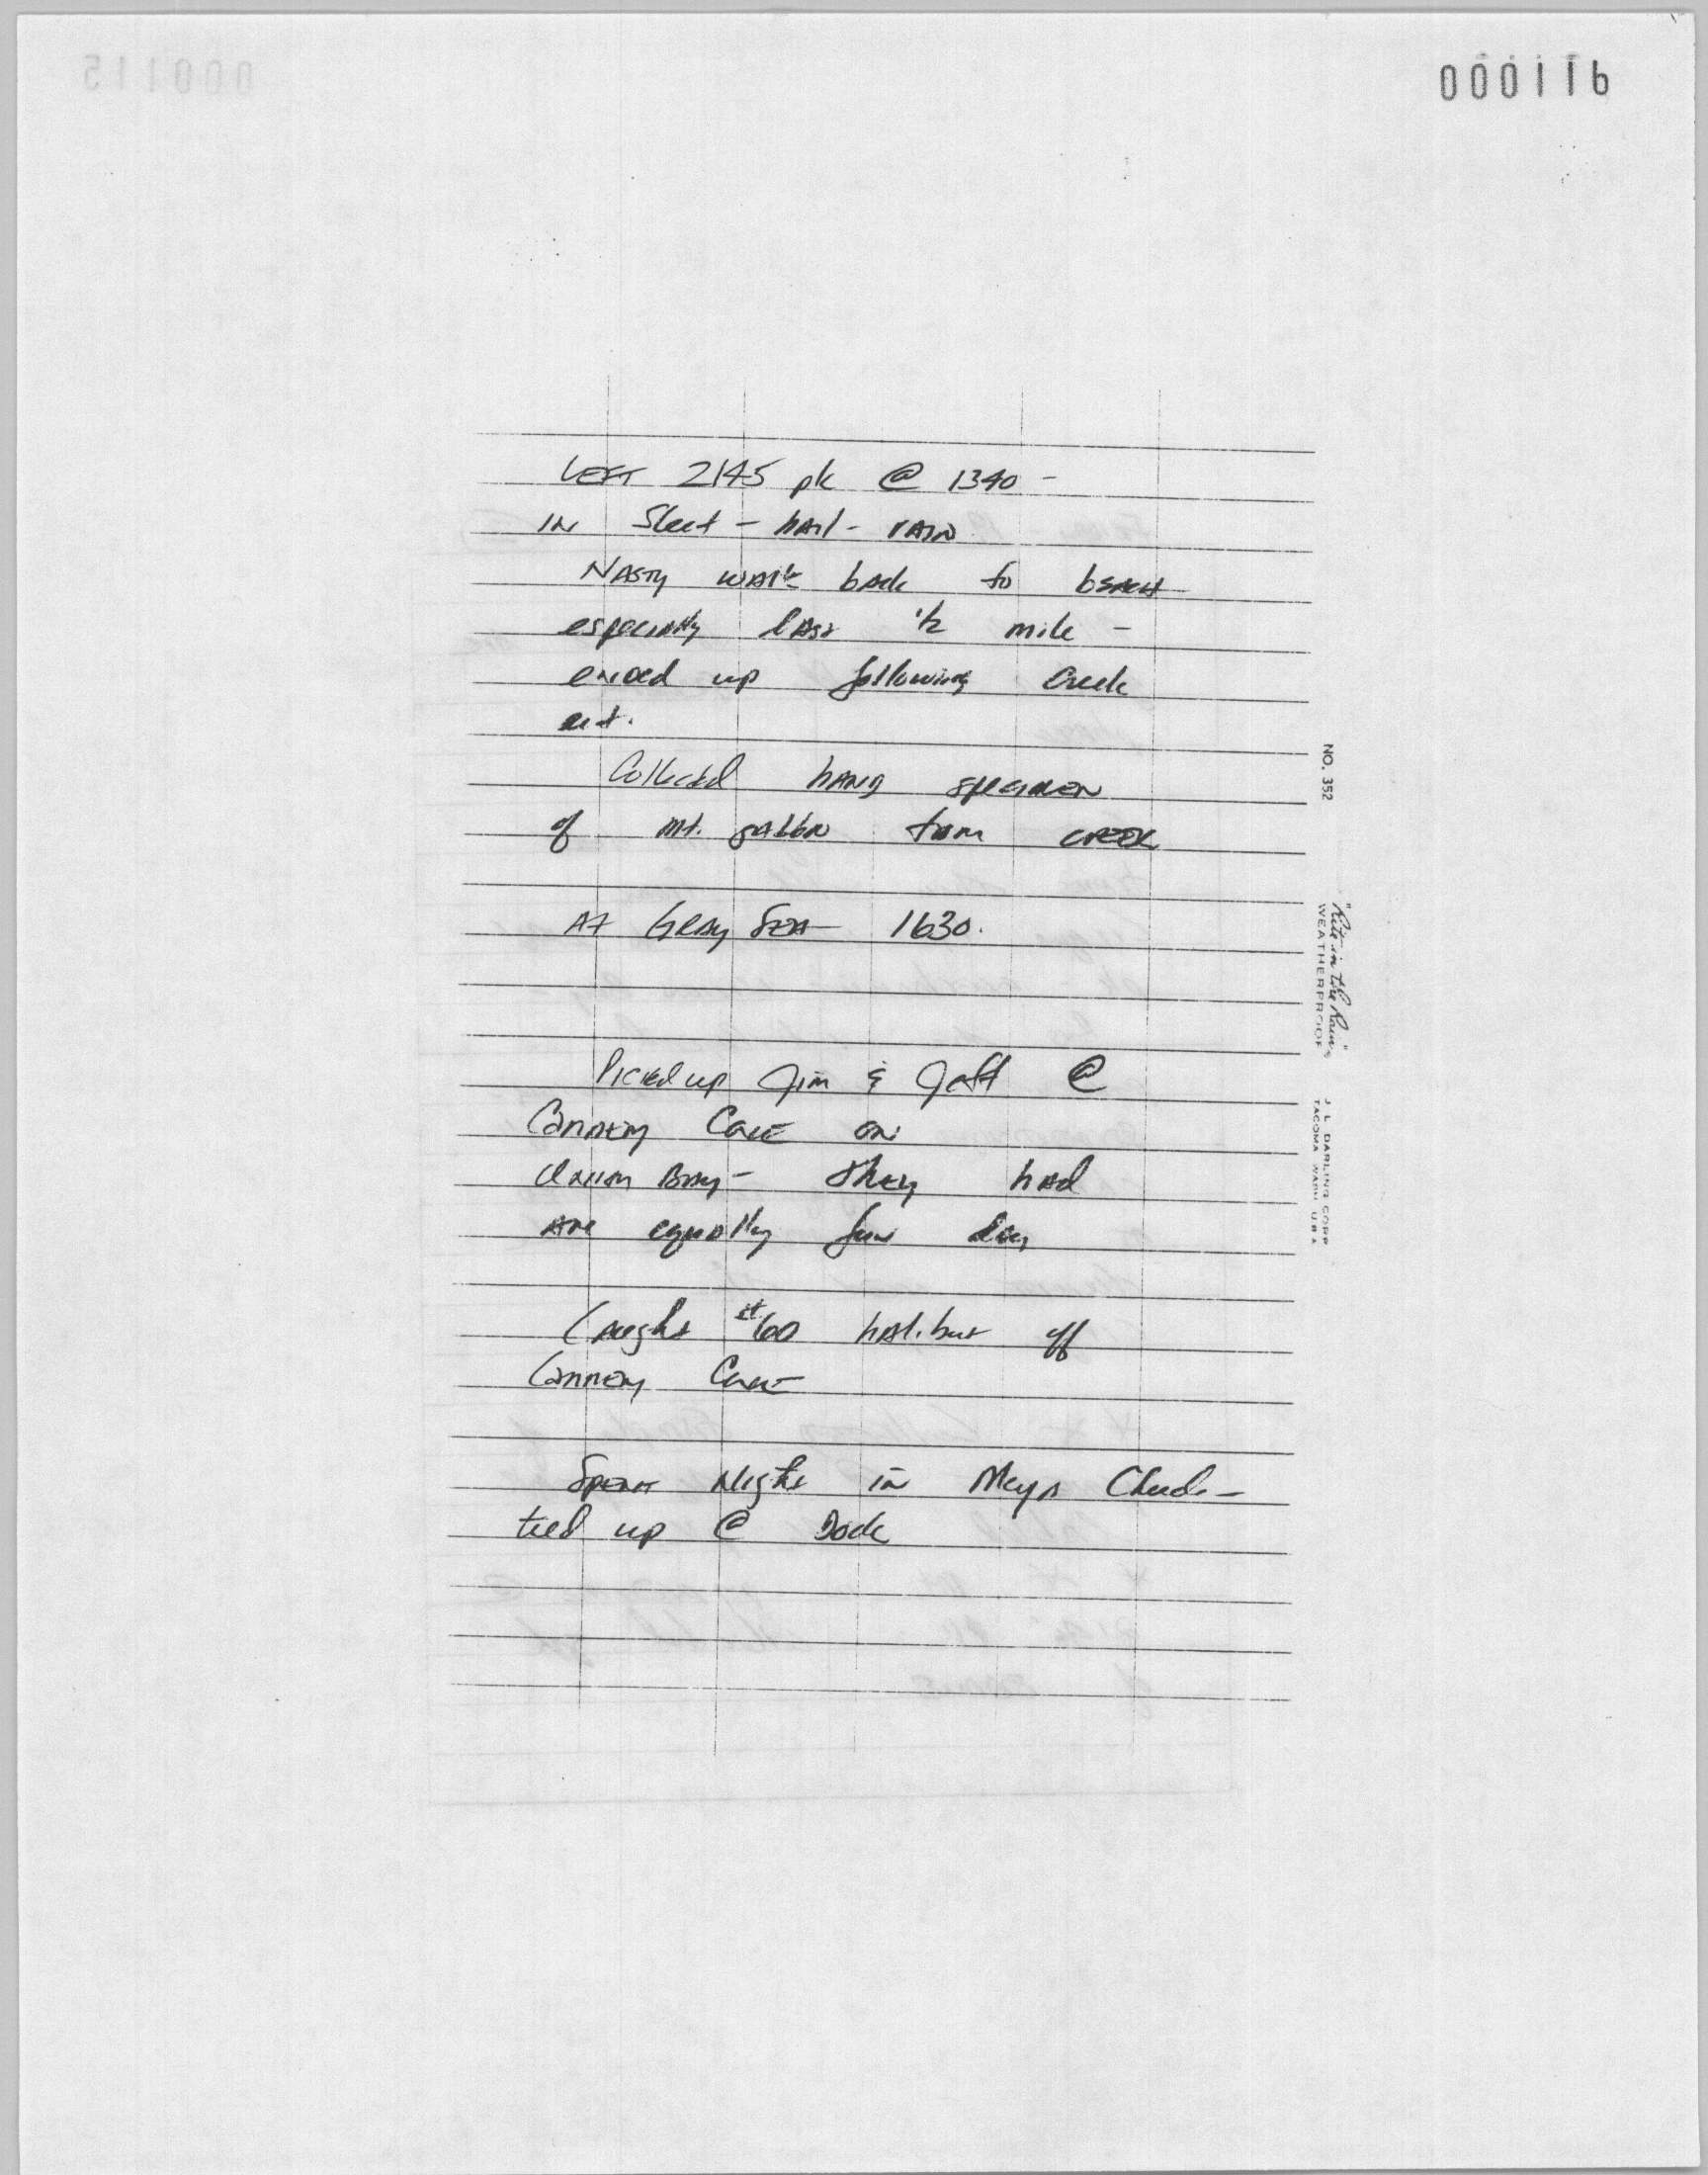 000116
LEFT 2145 pk @ 1340 -
IN Sleet - hail - rain
NASTY walk back to beach
especially last 1/2 mile -
ended up following creek
out.
Collected hand specimen
of mt. gabbro from creek
At Gray Sea 1630.
Picked up Jim & Jeff @
Cannery Cove on
Bay - they had
an equally fun day
Caught #60 halibut off
Cannery Cove
Spent Night in Meyers Chuck -
tied up @ Dock
NO. 352
"Rite in the Rain"
WEATHERPROOF
J. L. DARLING CORP
TACOMA WASH U S A
000115